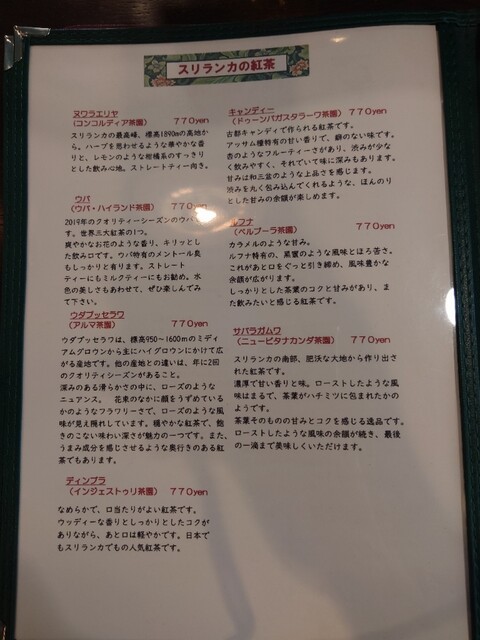 スリランカの紅茶
ヌワラエリヤ
(コンコルディア茶園) 770yen
スリランカの最高峰、標高1890mの高地か
ら、ハーブを思わせるような華やかな香
りと、レモンのような柑橘系のすっきり
とした飲み心地。ストレートティー向き。
ウバ
(ウバ・ハイランド茶園) 770yen
2019年のクオリティーシーズンのウバ
す。世界三大紅茶の1つ。
爽やかなお花のような香り、キリッとし
た飲み口です。ウバ特有のメントール臭
もしっかりと有ります。ストレート
ティーにもミルクティーにもお勧め。水
色の美しさもあわせて、ぜひ楽しんでみ
て下さい。
ウダプッセラワ
(アルマ茶園) 770yen
ウダプッセラワは、標高950～1600mのミディ
アムグロウンから主にハイグロウンにかけて広
がる産地です。他の産地との違いは、年に2回
のクオリティシーズンがあること。
深みのある滑らかさの中に、ローズのような
ニュアンス。 花束のなかに顔をうずめている
かのようなフラワリーさで、ローズのような風
味が見え隠れしています。穏やかな紅茶で、飽
きのこない味わい深さが魅力の一つです。また、
うまみ成分を感じさせるような奥行きのある紅
茶でもあります。
ディンブラ
(インジェストゥリ茶園) 770yen
なめらかで、口当たりがよい紅茶です。
ウッディーな香りとしっかりとしたコクが
ありながら、あと口は軽やかです。日本で
もスリランカでもの人気紅茶です。
キャンディー
(ドゥーンバガスタラーワ茶園) 770yen
古都キャンディで作られる紅茶です。
アッサム種特有の甘い香りで、癖のない味です。
杏のようなフルーティーさがあり、渋みが少な
く飲みやすく、それでいて味に深みもあります。
甘みは和三盆のような上品さを感じます。
渋みを丸く包み込んでくれるような、ほんのり
とした甘みの余韻が楽しめます。
ルフナ
(ベルブーラ茶園) 770yen
カラメルのような甘み。
ルフナ特有の、黒蜜のような風味とほろ苦さ。
これがあと口をぐっと引き締め、風味豊かな
余韻が広がります。
しっかりとした茶葉のコクと甘みがあり、ま
た飲みたいと感じる紅茶です。
サバラガムワ
(ニュービタナカンダ茶園) 770yen
スリランカの南部、肥沃な大地から作り出さ
れた紅茶です。
濃厚で甘い香りと味。ローストしたような風
味はまるで、茶葉がハチミツに包まれたかの
ようです。
茶葉そのものの甘みとコクを感じる逸品です。
ローストしたような風味の余韻が続き、最後
の一滴まで美味しくいただけます。